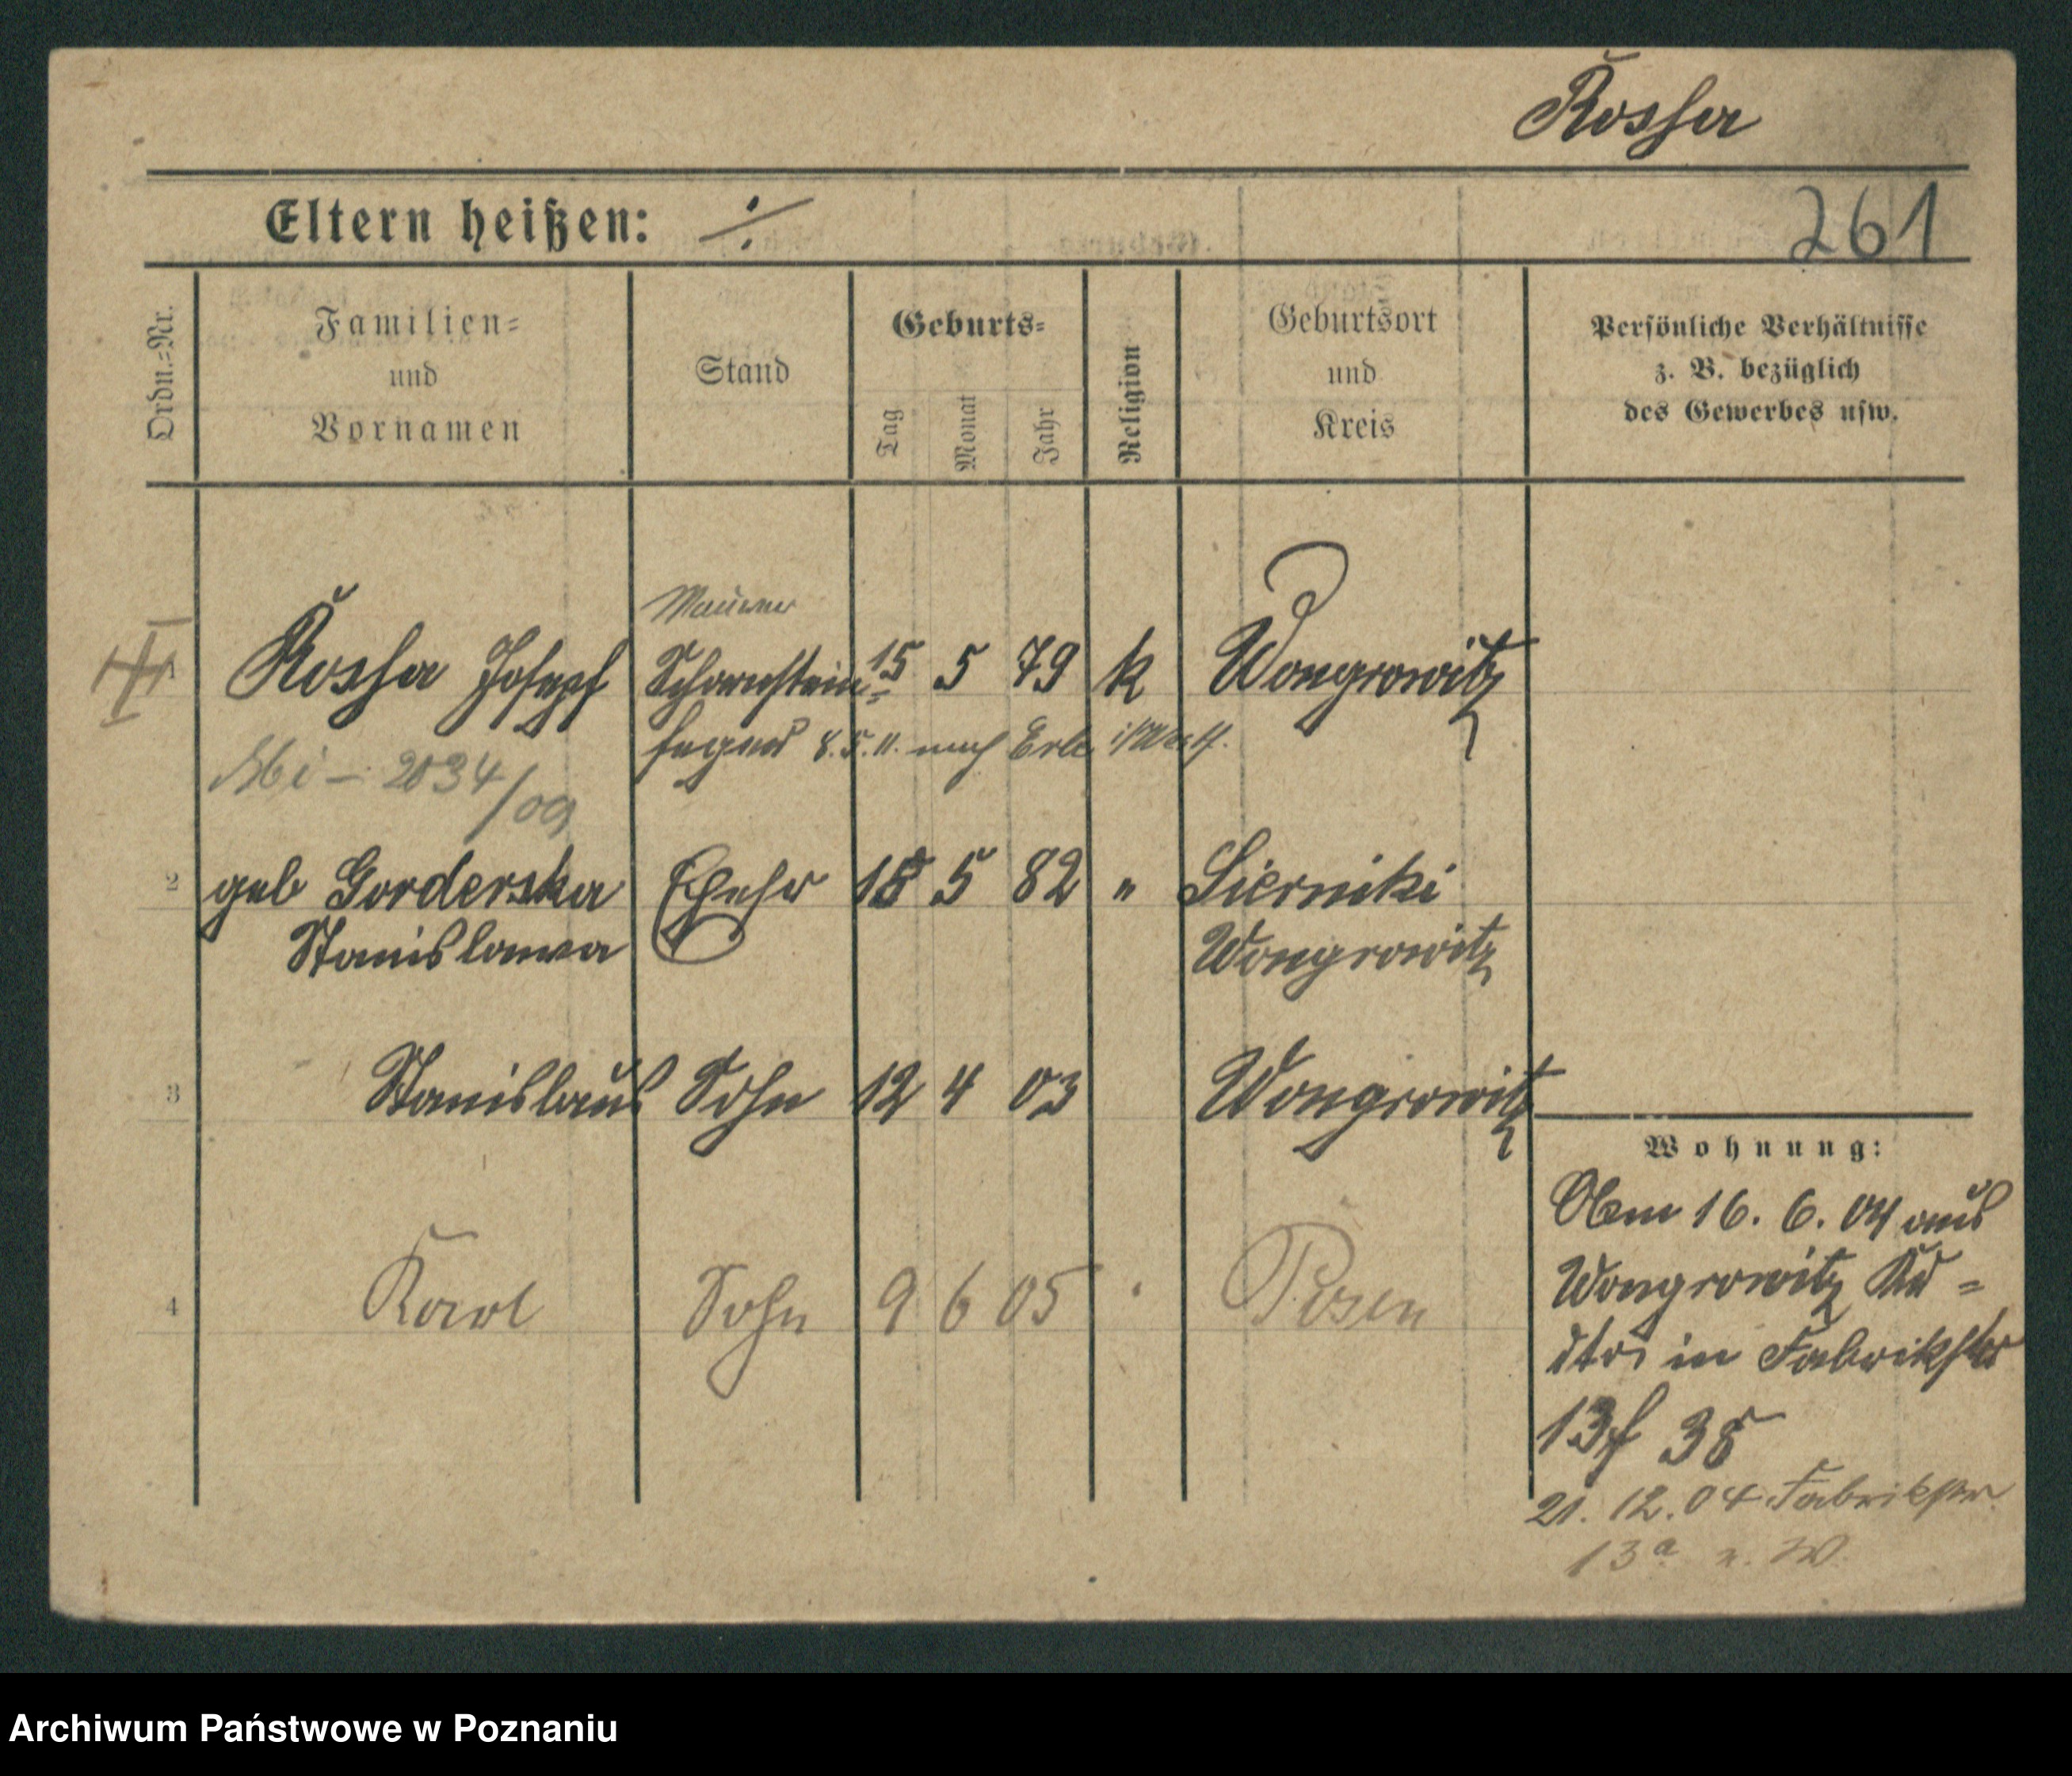 Rossa
Eltern heißen: ./.
261
Ordn.-Nr.
Familien-
und
Vornamen
Stand
Geburts-
Tag
Monat
Jahr
Religion
Geburtsort
und
Kreis
Persönliche Verhältnisse
z. B. bezüglich
des Gewerbes usw.
Maurer
Rossa Josepf Schornstein- 15 5 79 k Wongrowitz
feger 8.5.11. nach Erle i/Westf.
2034/09
2 geb Gorderska Ehefr 18 5 82 " Sierniki
Stanislawa Wongrowitz
3 Stanislaus Sohn 12 4 03 Wongrowitz
Wohnung:
4 Karl Sohn 9 6 05 Posen
16. 6. 04 aus
Wongrowitz
in Fabrikstr
13f 38
21. 12. 04 Fabrikstr.
13a
Archiwum Państwowe w Poznaniu